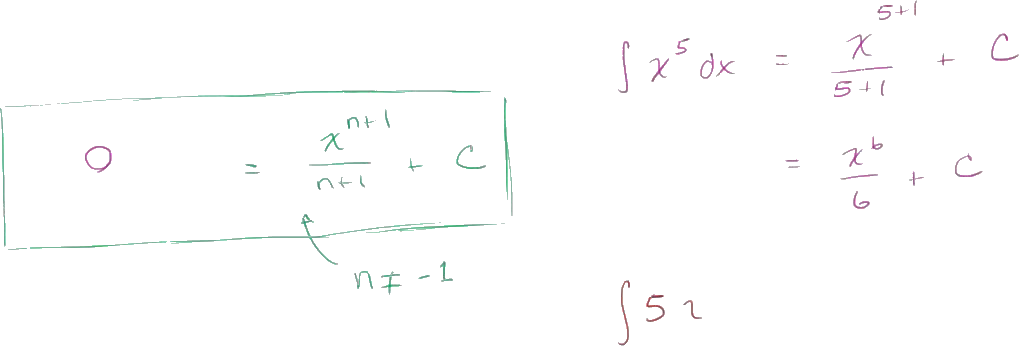 O = x^{n+1}/(n+1) + C
n ≠ -1
∫ x^5 dx = x^{5+1}/(5+1) + C
= x^6/6 + C
∫ 5